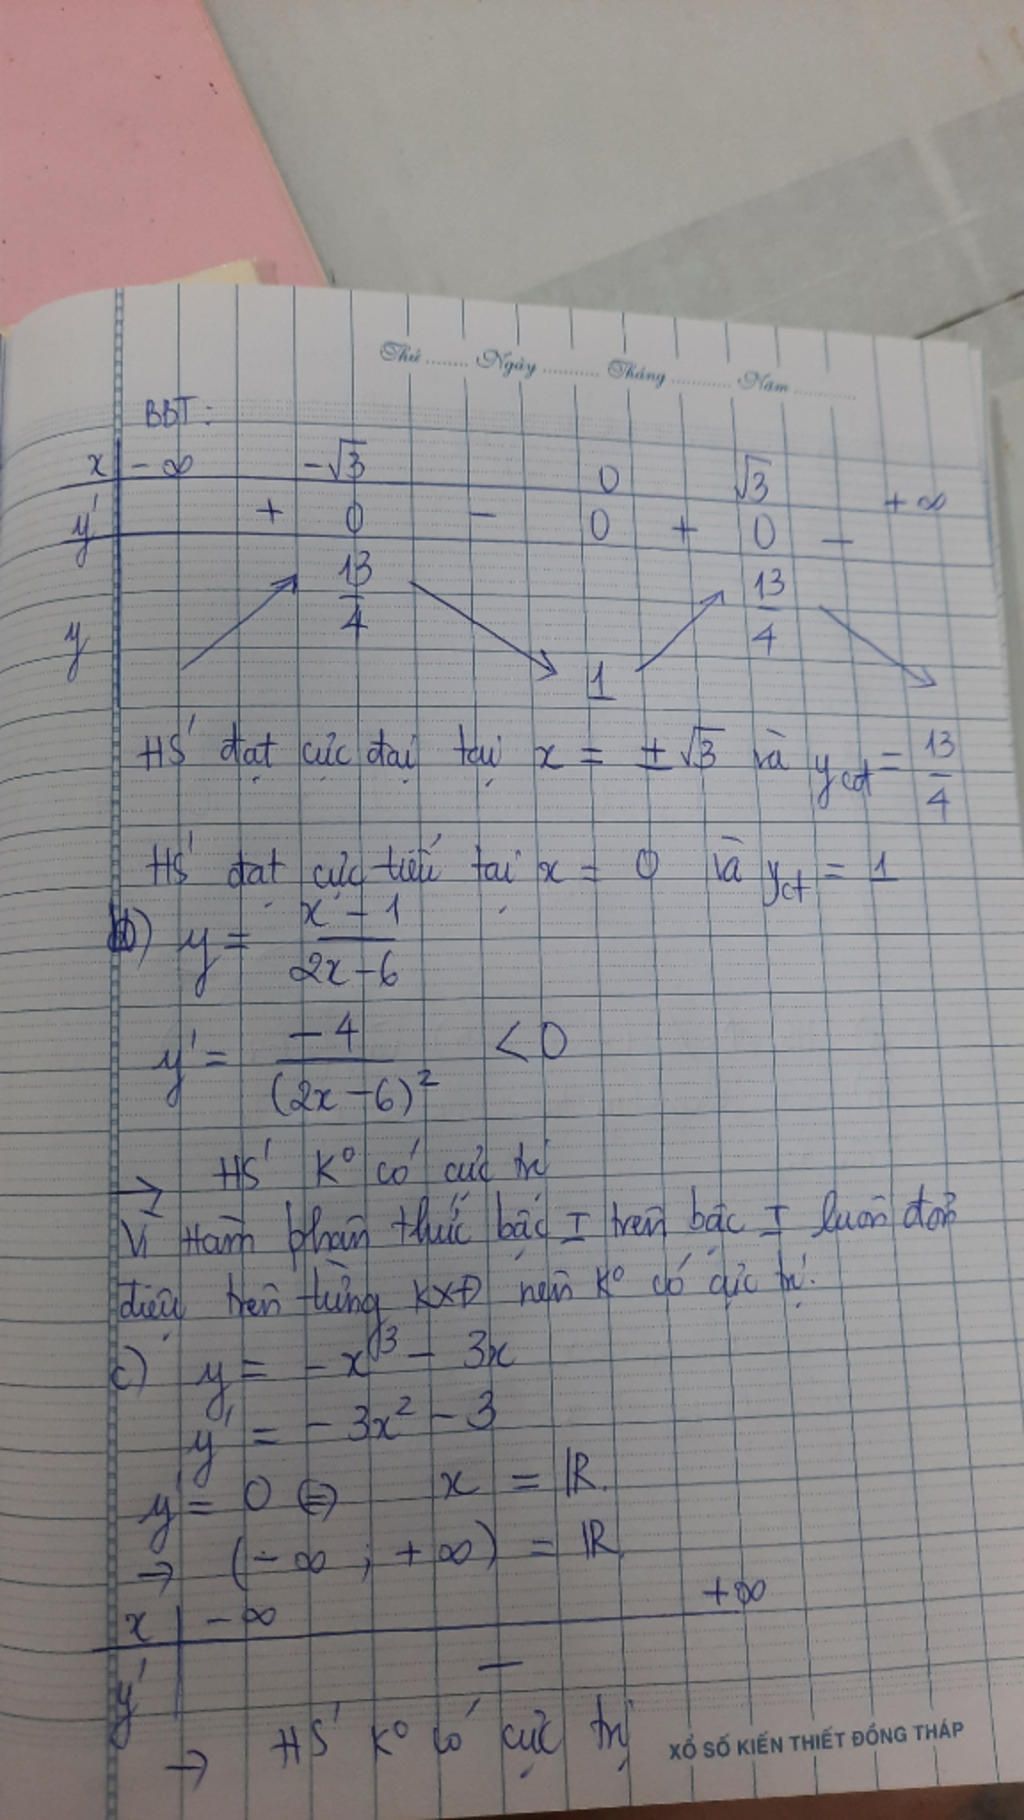 Thứ ........ Ngày ............ Tháng ............ Năm ............
BBT:
x -∞ -√3 0 √3 +∞
y' + 0 - 0 + 0 -
y 13/4 1 13/4
HS' đạt cực đại tại x = ±√3 và ycđ = 13/4
HS' đạt cực tiểu tại x = 0 và yct = 1
b) y = (x - 1)/(2x - 6)
y' = -4/(2x - 6)² < 0
→ HS' K° có cực trị
Vì Hàm phân thức bậc I trên bậc I luôn đơn
điệu trên từng KXĐ nên K° có cực trị.
c) y = -x³ - 3x
y' = -3x² - 3
y' = 0 ⇔ x = ℝ.
→ (-∞ ; +∞) = ℝ
x -∞ +∞
y' -
→ HS' K° có cực trị
XỔ SỐ KIẾN THIẾT ĐỒNG THÁP